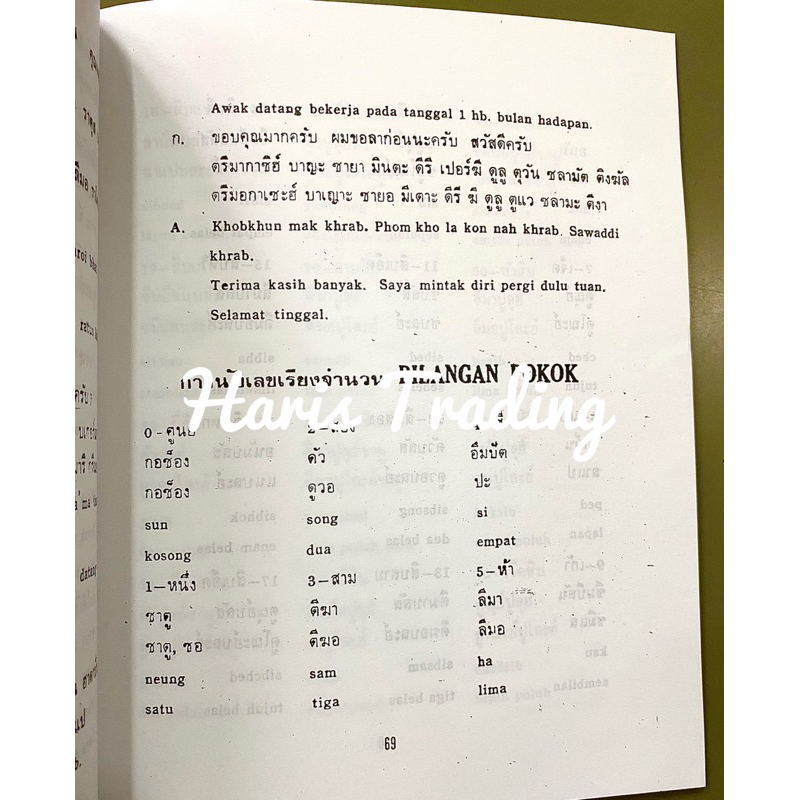 Awak datang bekerja pada tanggal 1 hb. bulan hadapan.
ก. ขอบคุณมากครับ ผมขอลาก่อนนะครับ สวัสดีครับ
ตรีมากาซิฮ์ บาญะ ซายา มินตะ ดีรี เปอร์ฆี ดูลู ตุวัน ซลามัต ติงฆัล
ตรีมอกาเซะฮ์ บาเญาะ ซายอ มีเตาะ ดีรี ฆี ดูลู ตูแว ซลามะ ตีงา
A. Khobkhun mak khrab. Phom kho la kon nah khrab. Sawaddi
khrab.
Terima kasih banyak. Saya mintak diri pergi dulu tuan.
Selamat tinggal.
การนับเลขเรียงจำนวน BILANGAN POKOK
Haris Trading
0-ศูนย์
กอซ็อง ดัว อึมบัต
กอซ็อง ดูวอ ปะ
sun song si
kosong dua empat
1-หนึ่ง 3-สาม 5-ห้า
ซาตู ตีฆา ลีมา
ซาตู, ซอ ตีฆอ ลีมอ
neung sam ha
satu tiga lima
69